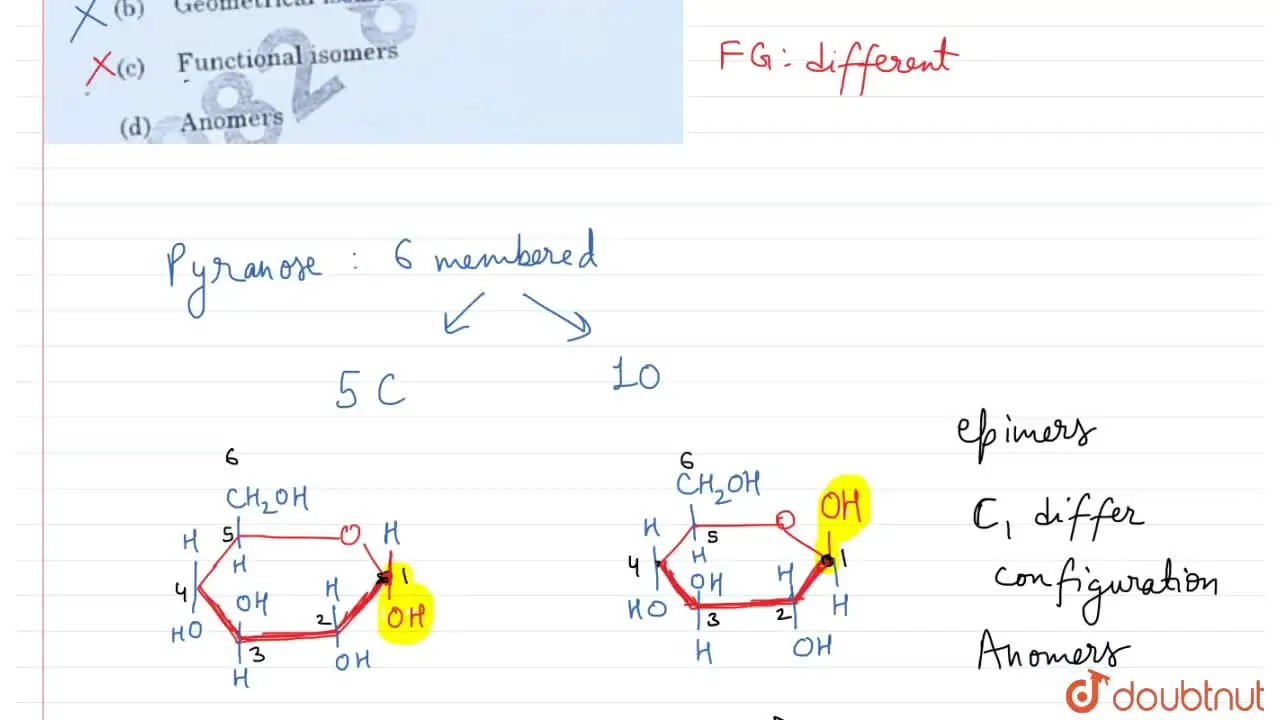 (b) Geometrical isom
X (c) Functional isomers
FG: different
(d) Anomers
Pyranose : 6 membered
5 C
1O
epimers
C1 differ
configuration
Anomers
6
CH2OH
5
O
H
H
H
1
4
OH
H
2
OH
HO
3
OH
H
6
CH2OH
OH
H
5
O
1
4
H
OH
H
HO
3
2
H
H
OH
doubtnut